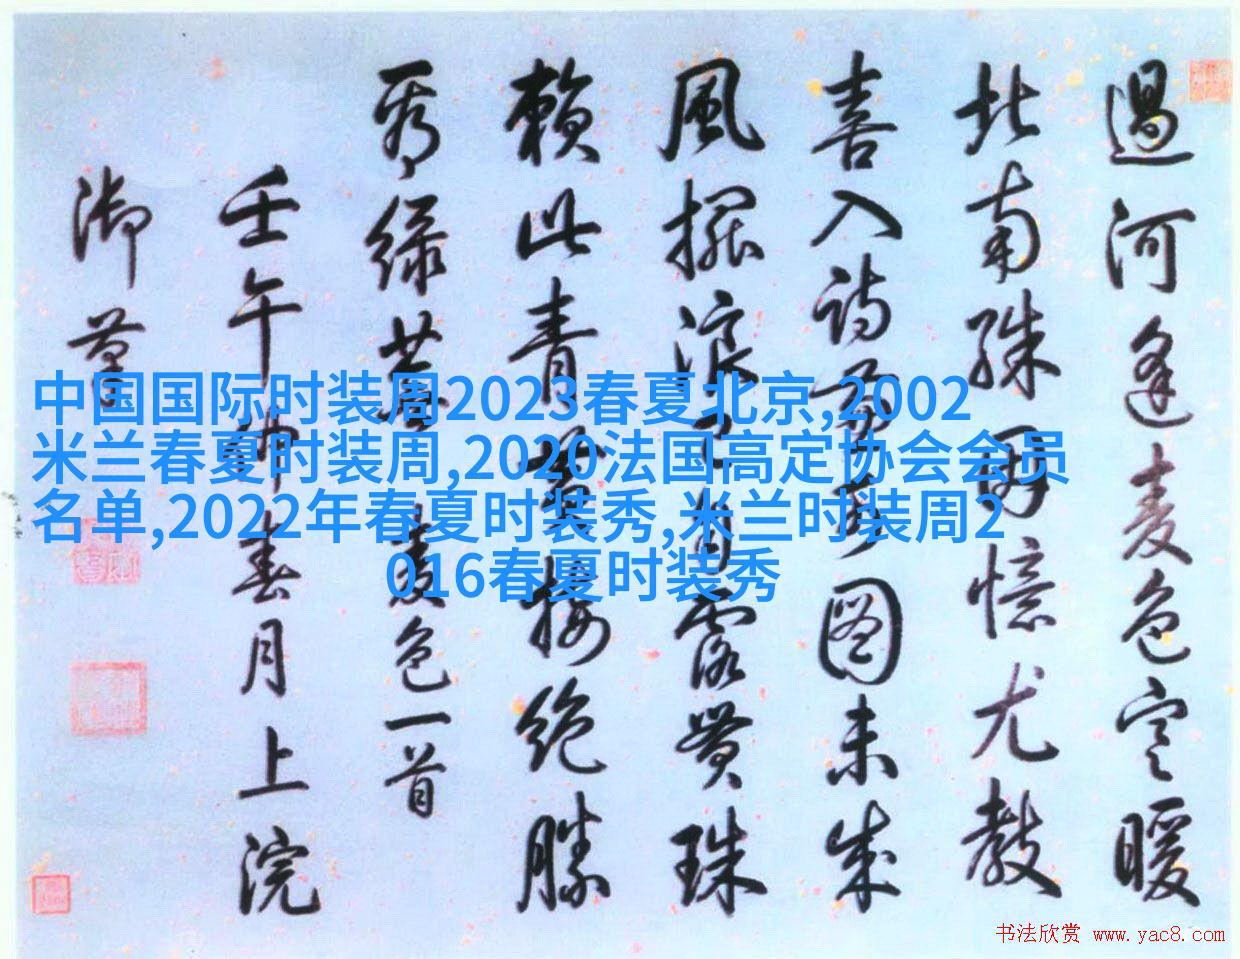 過河逢麦色寒暖
北南殊因憶尤教
喜入詩家列圖未成
風擺浪光皆露贯珠
賴此青葱接绝勝
秀绿荗麦色一首
壬午仲春月上浣
御筆
中国国际时装周2023春夏北京,2002
米兰春夏时装周,2020法国高定协会会员
名单,2022年春夏时装秀,米兰时装周2
016春夏时装秀
书法欣赏 www.yac8.com